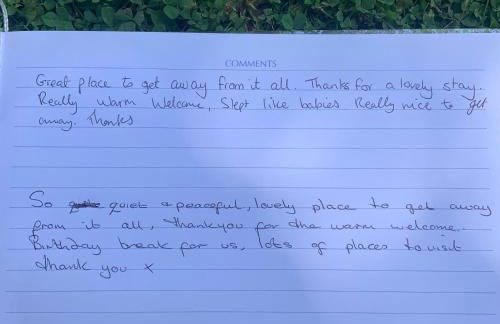 COMMENTS
Great place to get away from it all. Thanks for a lovely stay.
Really warm Welcome, Slept like babies Really nice to get
away. Thanks
So quiet & peaceful, lovely place to get away
from it all, thankyou for the warm welcome.
Birthday break for us, lots of places to visit
thank you x